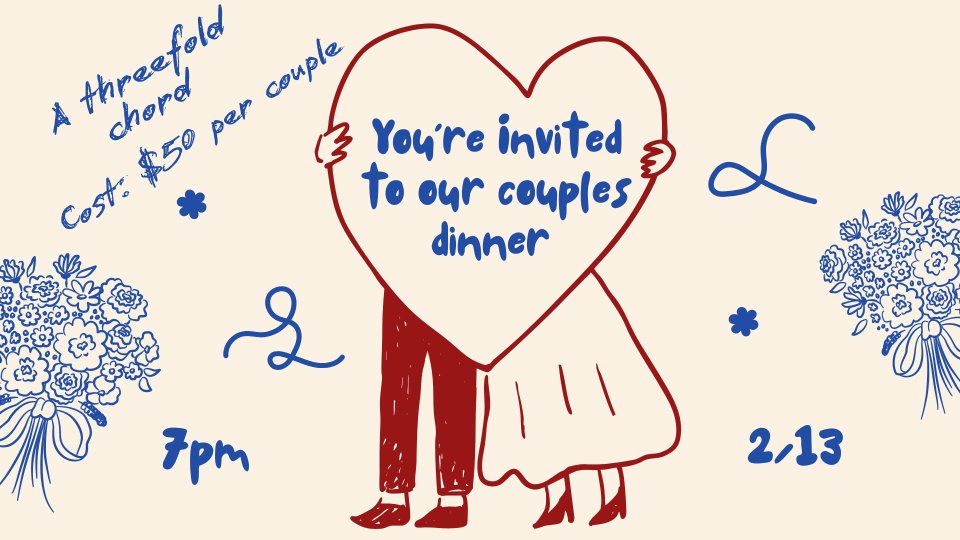 A threefold
chord
Cost: $50 per couple
You're invited
to our couples
dinner
7pm
2/13